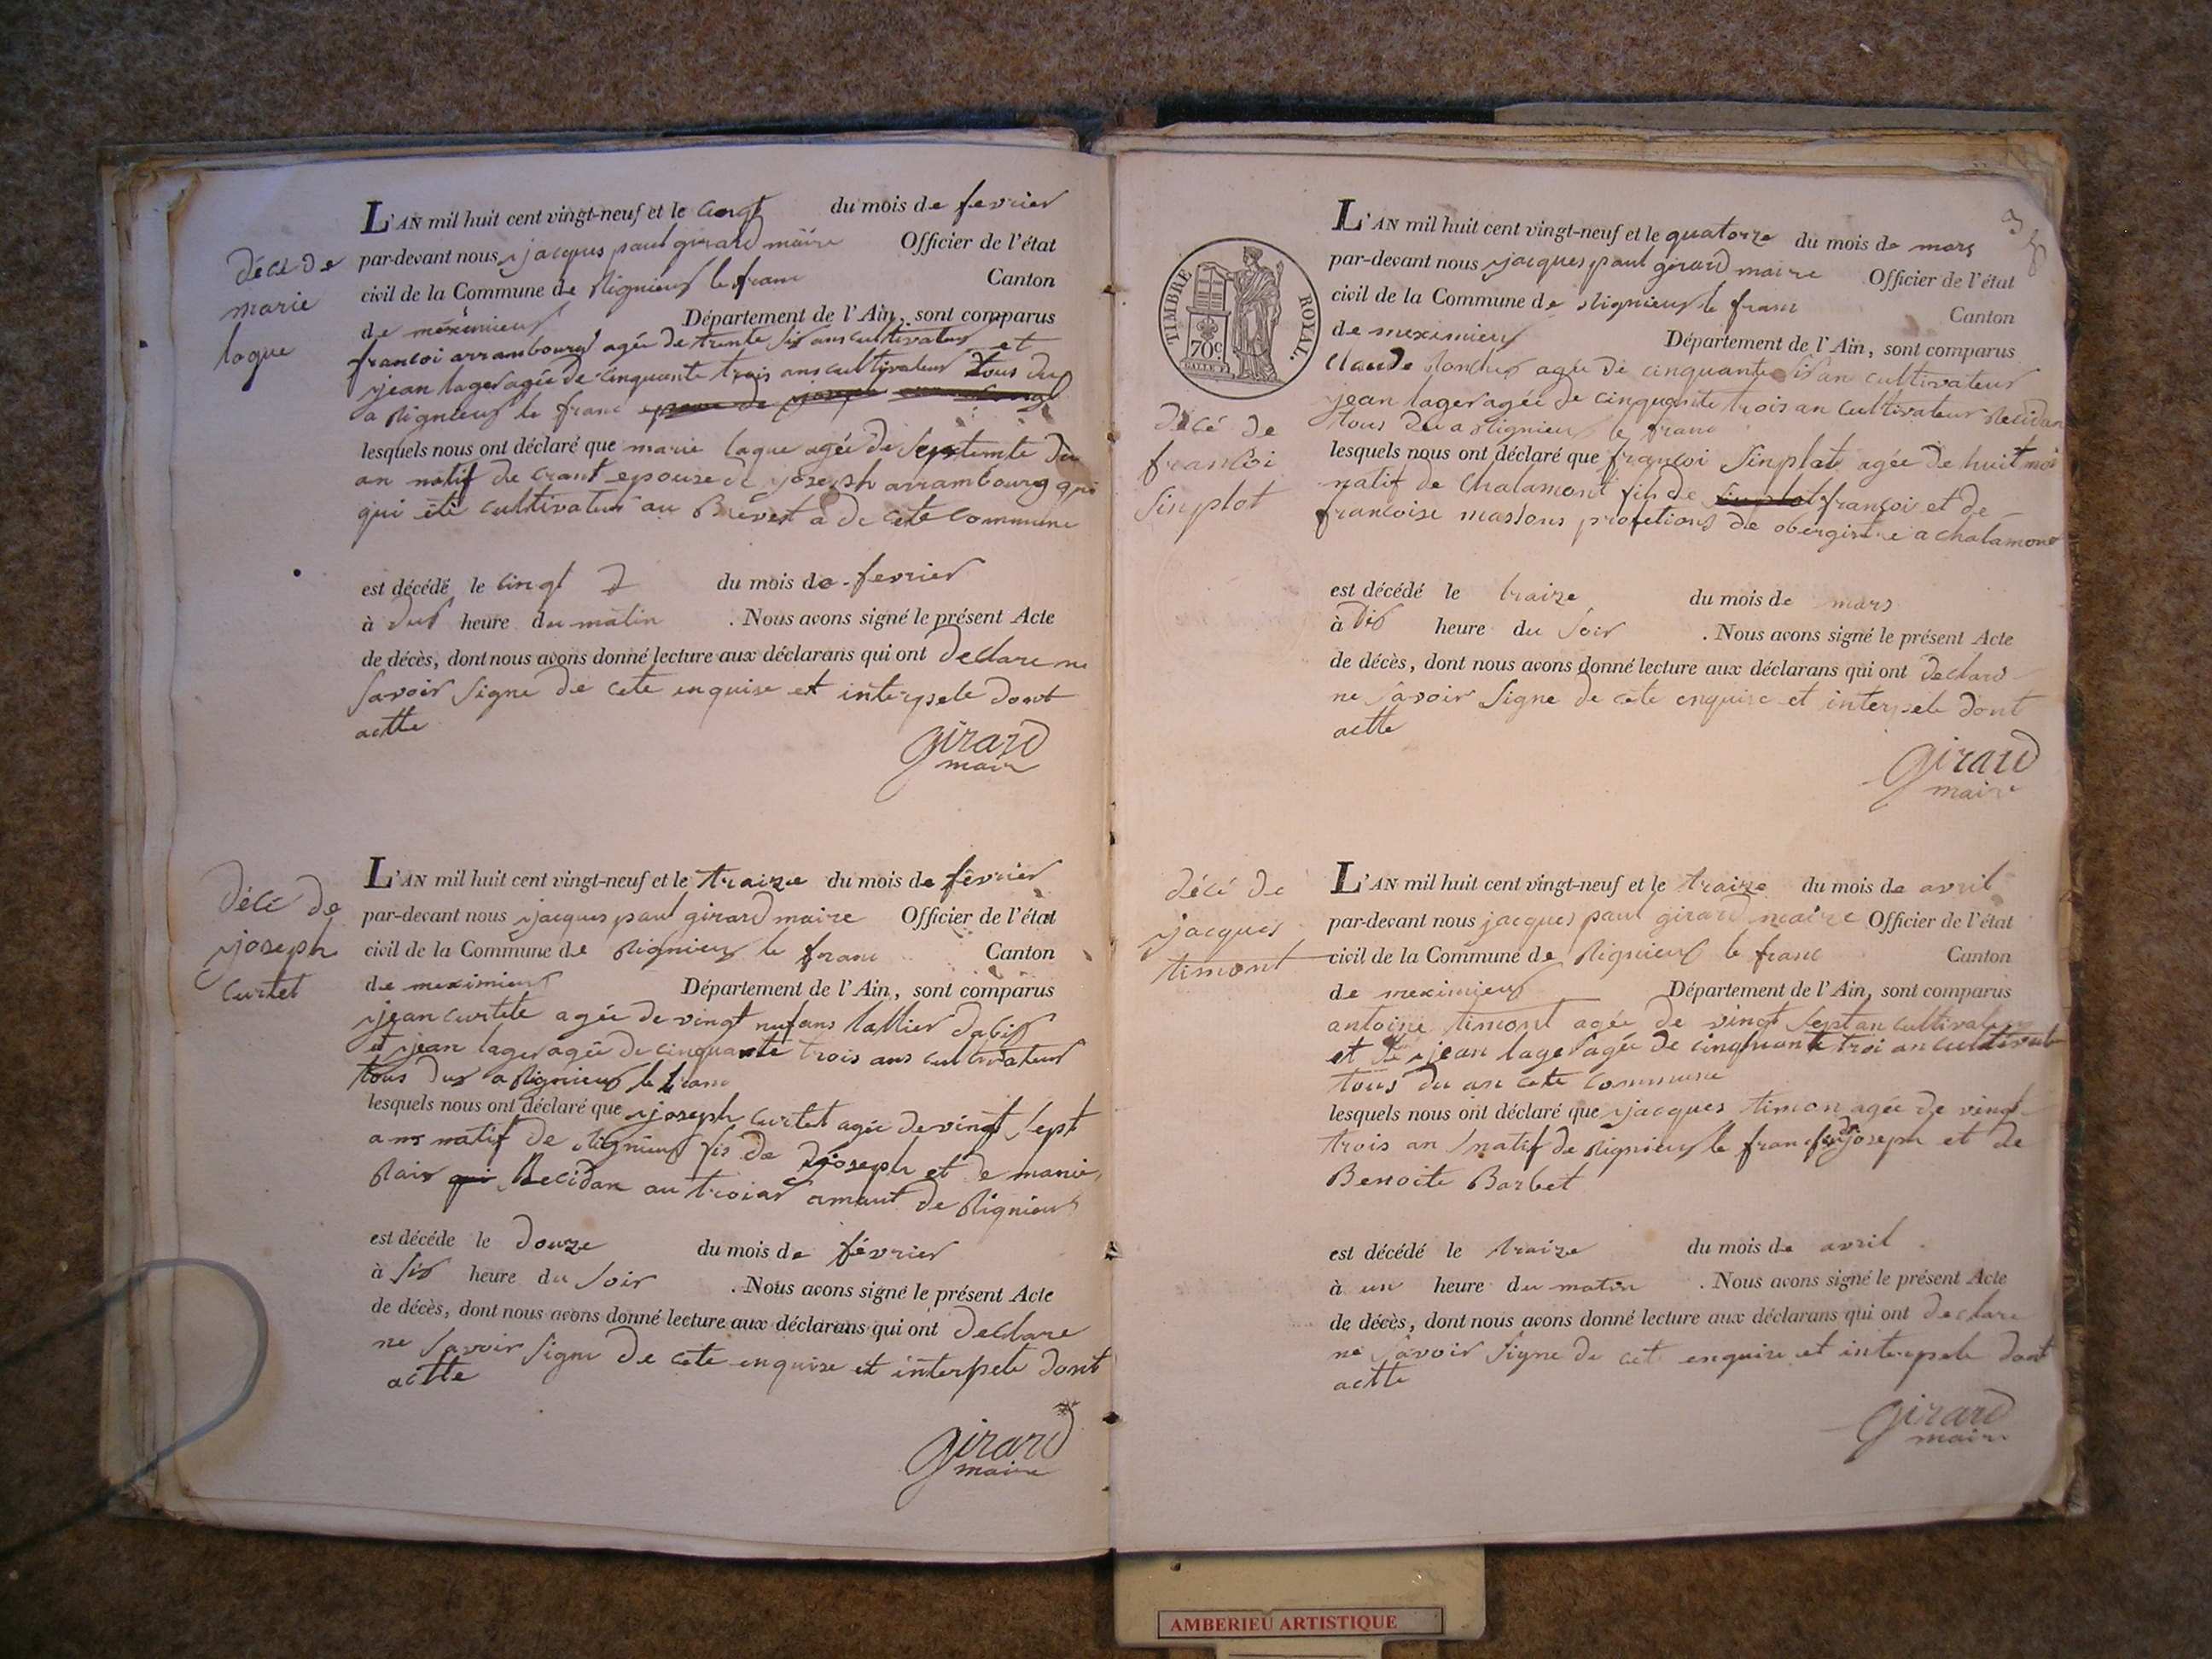 décé de
marie
loque
L'AN mil huit cent vingt-neuf et le cinqt du mois de fevrier
par-devant nous jacques paul girard maire Officier de l'état
civil de la Commune de Rignieux le franc Canton
de meximieux Département de l'Ain, sont comparus
francoi arrambourg agée de trente six ans cultivateur et
jean lager agée de cinquante trois ans cultivateur tous du
a Rignieux le franc
lesquels nous ont déclaré que marie loque agée de septente du
an natif de crant epouse de joseph arrambourg qui
qui été cultivateur au Brevet a de cete commune
est décédé le cinqt du mois de fevrier
à dus heure du matin . Nous avons signé le présent Acte
de décès, dont nous avons donné lecture aux déclarans qui ont declare ne
savoir signe de cete enquise et interpele dont
actte
girard
maire
décé de
joseph
curtet
L'AN mil huit cent vingt-neuf et le traize du mois de février
par-devant nous jacques paul girard maire Officier de l'état
civil de la Commune de Rignieux le franc Canton
de meximieux Département de l'Ain, sont comparus
jean curtete agée de vingt nuf ans tallier dabis
et jean lager agée de cinquante trois ans cultivateur
tous dus a Rignieux le franc
lesquels nous ont déclaré que joseph curtet agée de vingt sept
ans natif de Rignieux fis de joseph et de marie
Rair qui Recidan au troiar amaut de Rignieux
est décéde le douze du mois de février
à six heure du soir . Nous avons signé le présent Acte
de décès, dont nous avons donné lecture aux déclarans qui ont declare
ne savoir signe de cete enquise et interpele dont
actte
girard
maire
3
TIMBRE ROYAL.
70c
décé de
francoi
sinplot
L'AN mil huit cent vingt-neuf et le quatorze du mois de mars
par-devant nous jacques paul girard maire Officier de l'état
civil de la Commune de Rignieux le franc Canton
de meximieux Département de l'Ain, sont comparus
claude agée de cinquante six an cultivateur
jean lager agée de cinquante trois an cultivateur Recidan
tous du a Rignieux le franc
lesquels nous ont déclaré que françoi sinplot agée de huit moi
natif de chalamont fils de françoi et de
francoise massons profetions de obergiste a chalamont
est décédé le traize du mois de mars
à dix heure du soir . Nous avons signé le présent Acte
de décès, dont nous avons donné lecture aux déclarans qui ont declare
ne savoir signe de cete enquise et interpele dont
actte
girard
maire
décé de
jacques
timont
L'AN mil huit cent vingt-neuf et le traize du mois de avril
par-devant nous jacques paul girard maire Officier de l'état
civil de la Commune de Rignieux le franc Canton
de meximieux Département de l'Ain, sont comparus
antoine timont agée de vingt sept an cultivateur
et de jean lager agée de cinquante troi an cultivateur
tous du an cete commune
lesquels nous ont déclaré que jacques timon agée de vingt
trois an natif de Rignieux le franc fis de joseph et de
Benoite Barbet
est décédé le traize du mois de avril
à un heure du matin . Nous avons signé le présent Acte
de décès, dont nous avons donné lecture aux déclarans qui ont declare
ne savoir signe de cete enquise et interpele dont
actte
girard
maire
AMBERIEU ARTISTIQUE